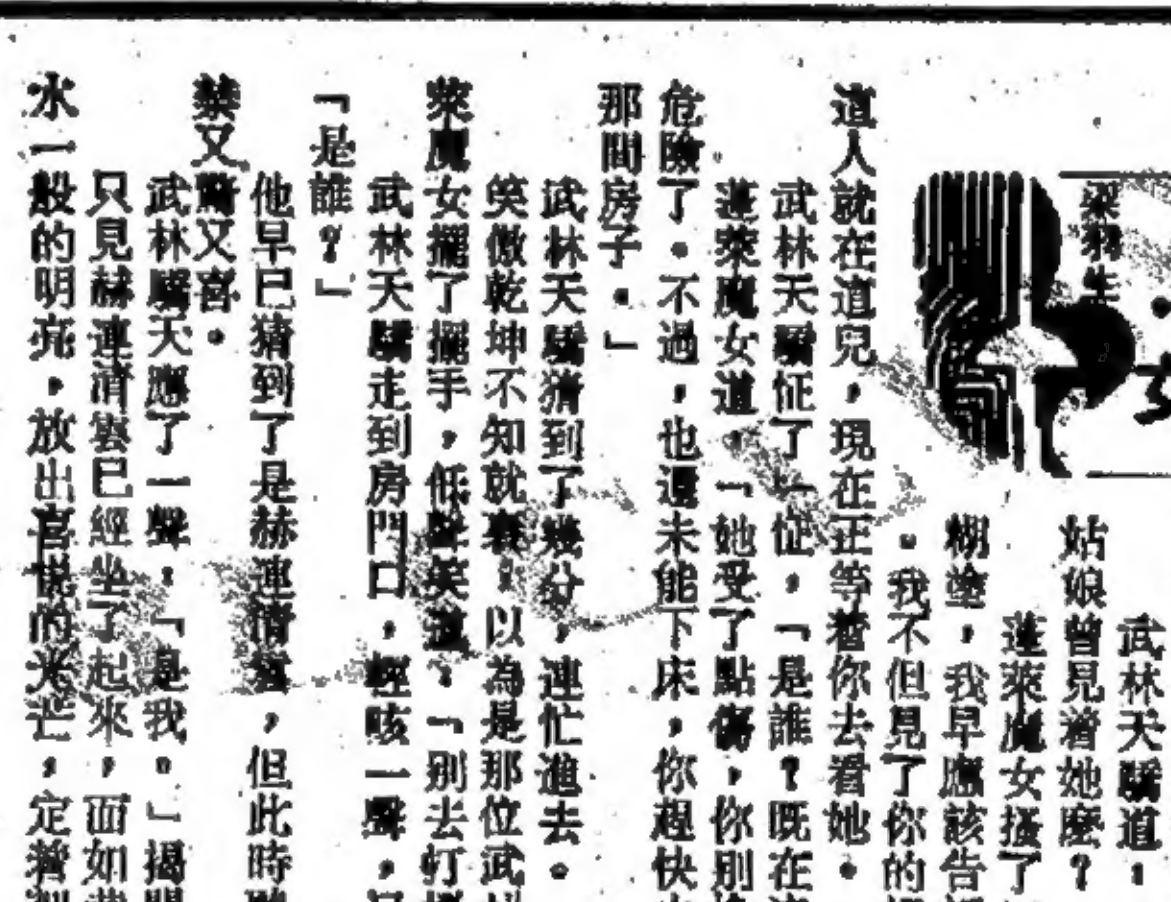 梁羽生
武林天驕道:
姑娘曾見着她麽?
蓬萊魔女搔了
糊塗,我早應該告
。我不但見了你的
道人就在這兒,現在正等着你去看她。
武林天驕怔了一怔,「是誰?既在
蓬萊魔女道,「她受了點傷,你別
危險了。不過,也還未能下床,你趕快
那間房子。」
武林天驕猜到了幾分,連忙進去。
笑傲乾坤不知就裏,以為是那位武
萊魔女擺了擺手,低聲笑道:「別去打
武林天驕走到房門口,輕咳一聲,
「是誰?」
他早已猜到了是赫連清雲,但此時
禁又驚又喜。
武林天驕應了一聲:「是我。」揭開
只見赫連清雲已經坐了起來,面如
水一般的明亮,放出喜悅的光芒,定着